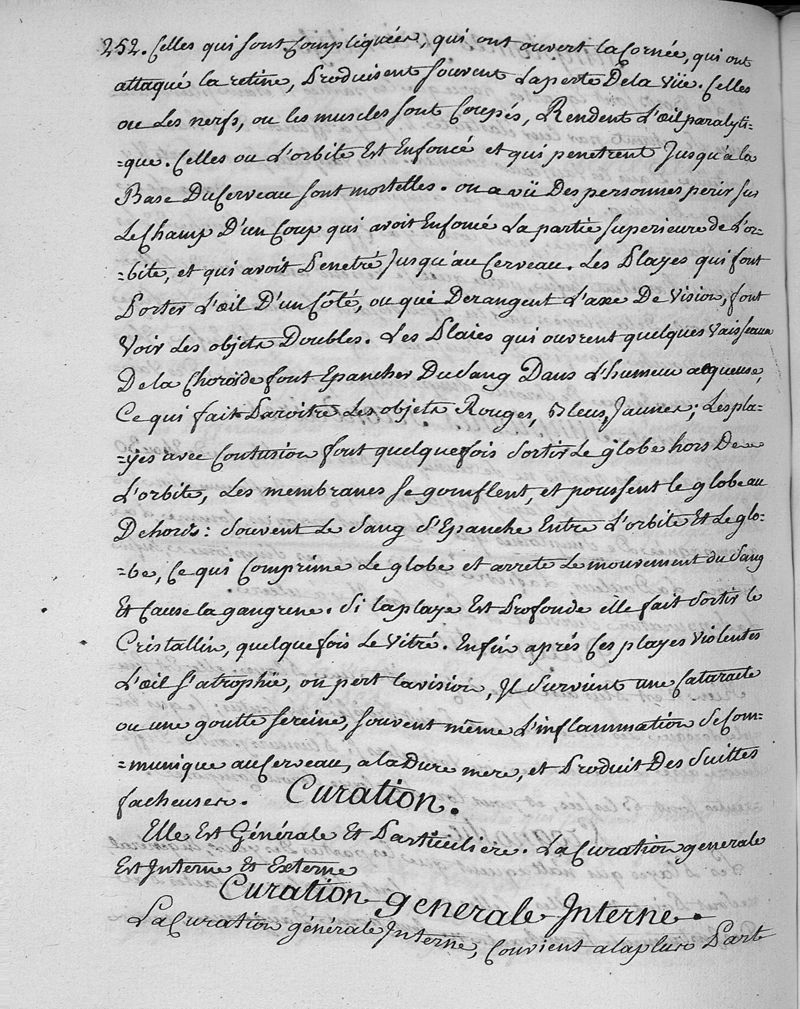 252. Celles qui sont Compliquées, qui ont ouvert la Cornée, qui ont
attaqué la retine, Produisent souvent La perte De la Vüe. Celles
ou Les nerfs, ou les muscles sont Coupés, Rendent L'œil paralyti=
=que. Celles ou L'orbite Est Enfoncé et qui penetrent Jusqu'a la
Base Du Cerveau sont mortelles. on a vü Des personnes perir sur
Le Champ D'un Coup qui avoit Enfoncé La partie superieure de L'or=
=bite, et qui avoit Penetré Jusqu'au Cerveau. Les Playes qui font
Porter L'œil D'un Côté, ou qui Derangent L'axe De Vision, font
Voir Les objets Doubles. Les Plaies qui ouvrent quelques Vaisseaux
De la Choroïde font Epancher Du Sang Dans L'humeur acqueuse,
Ce qui fait Paroitre Les objets Rouges, Bleus, Jaunes; Les pla=
=yes avec Contusion font quelquefois Sortir Le globe hors De
L'orbite, Les membranes se gomflent, et poussent le globe au
Dehors: Souvent Le Sang S'Epanche Entre L'orbite Et Le glo=
=be, Ce qui Comprime Le globe et arrete Le mouvement du Sang
Et Cause la gangrene. Si la playe Est Profonde elle fait Sortir le
Cristallin, quelquefois Le Vitré. Enfin aprés Ces playes Violentes
L'œil S'atrophïe, on pert la vision, Il Survient une Cataracte
ou une goutte sereine, souvent même L'inflammation se Com=
=munique au Cerveau, a la Dure mere, et Produit Des Suittes
facheuses. Curation.
Elle Est Générale Et Particuliere. La Curation generale
Est Interne Et Externe
Curation generale Interne.
La Curation générale Interne, Convient a la plus Part